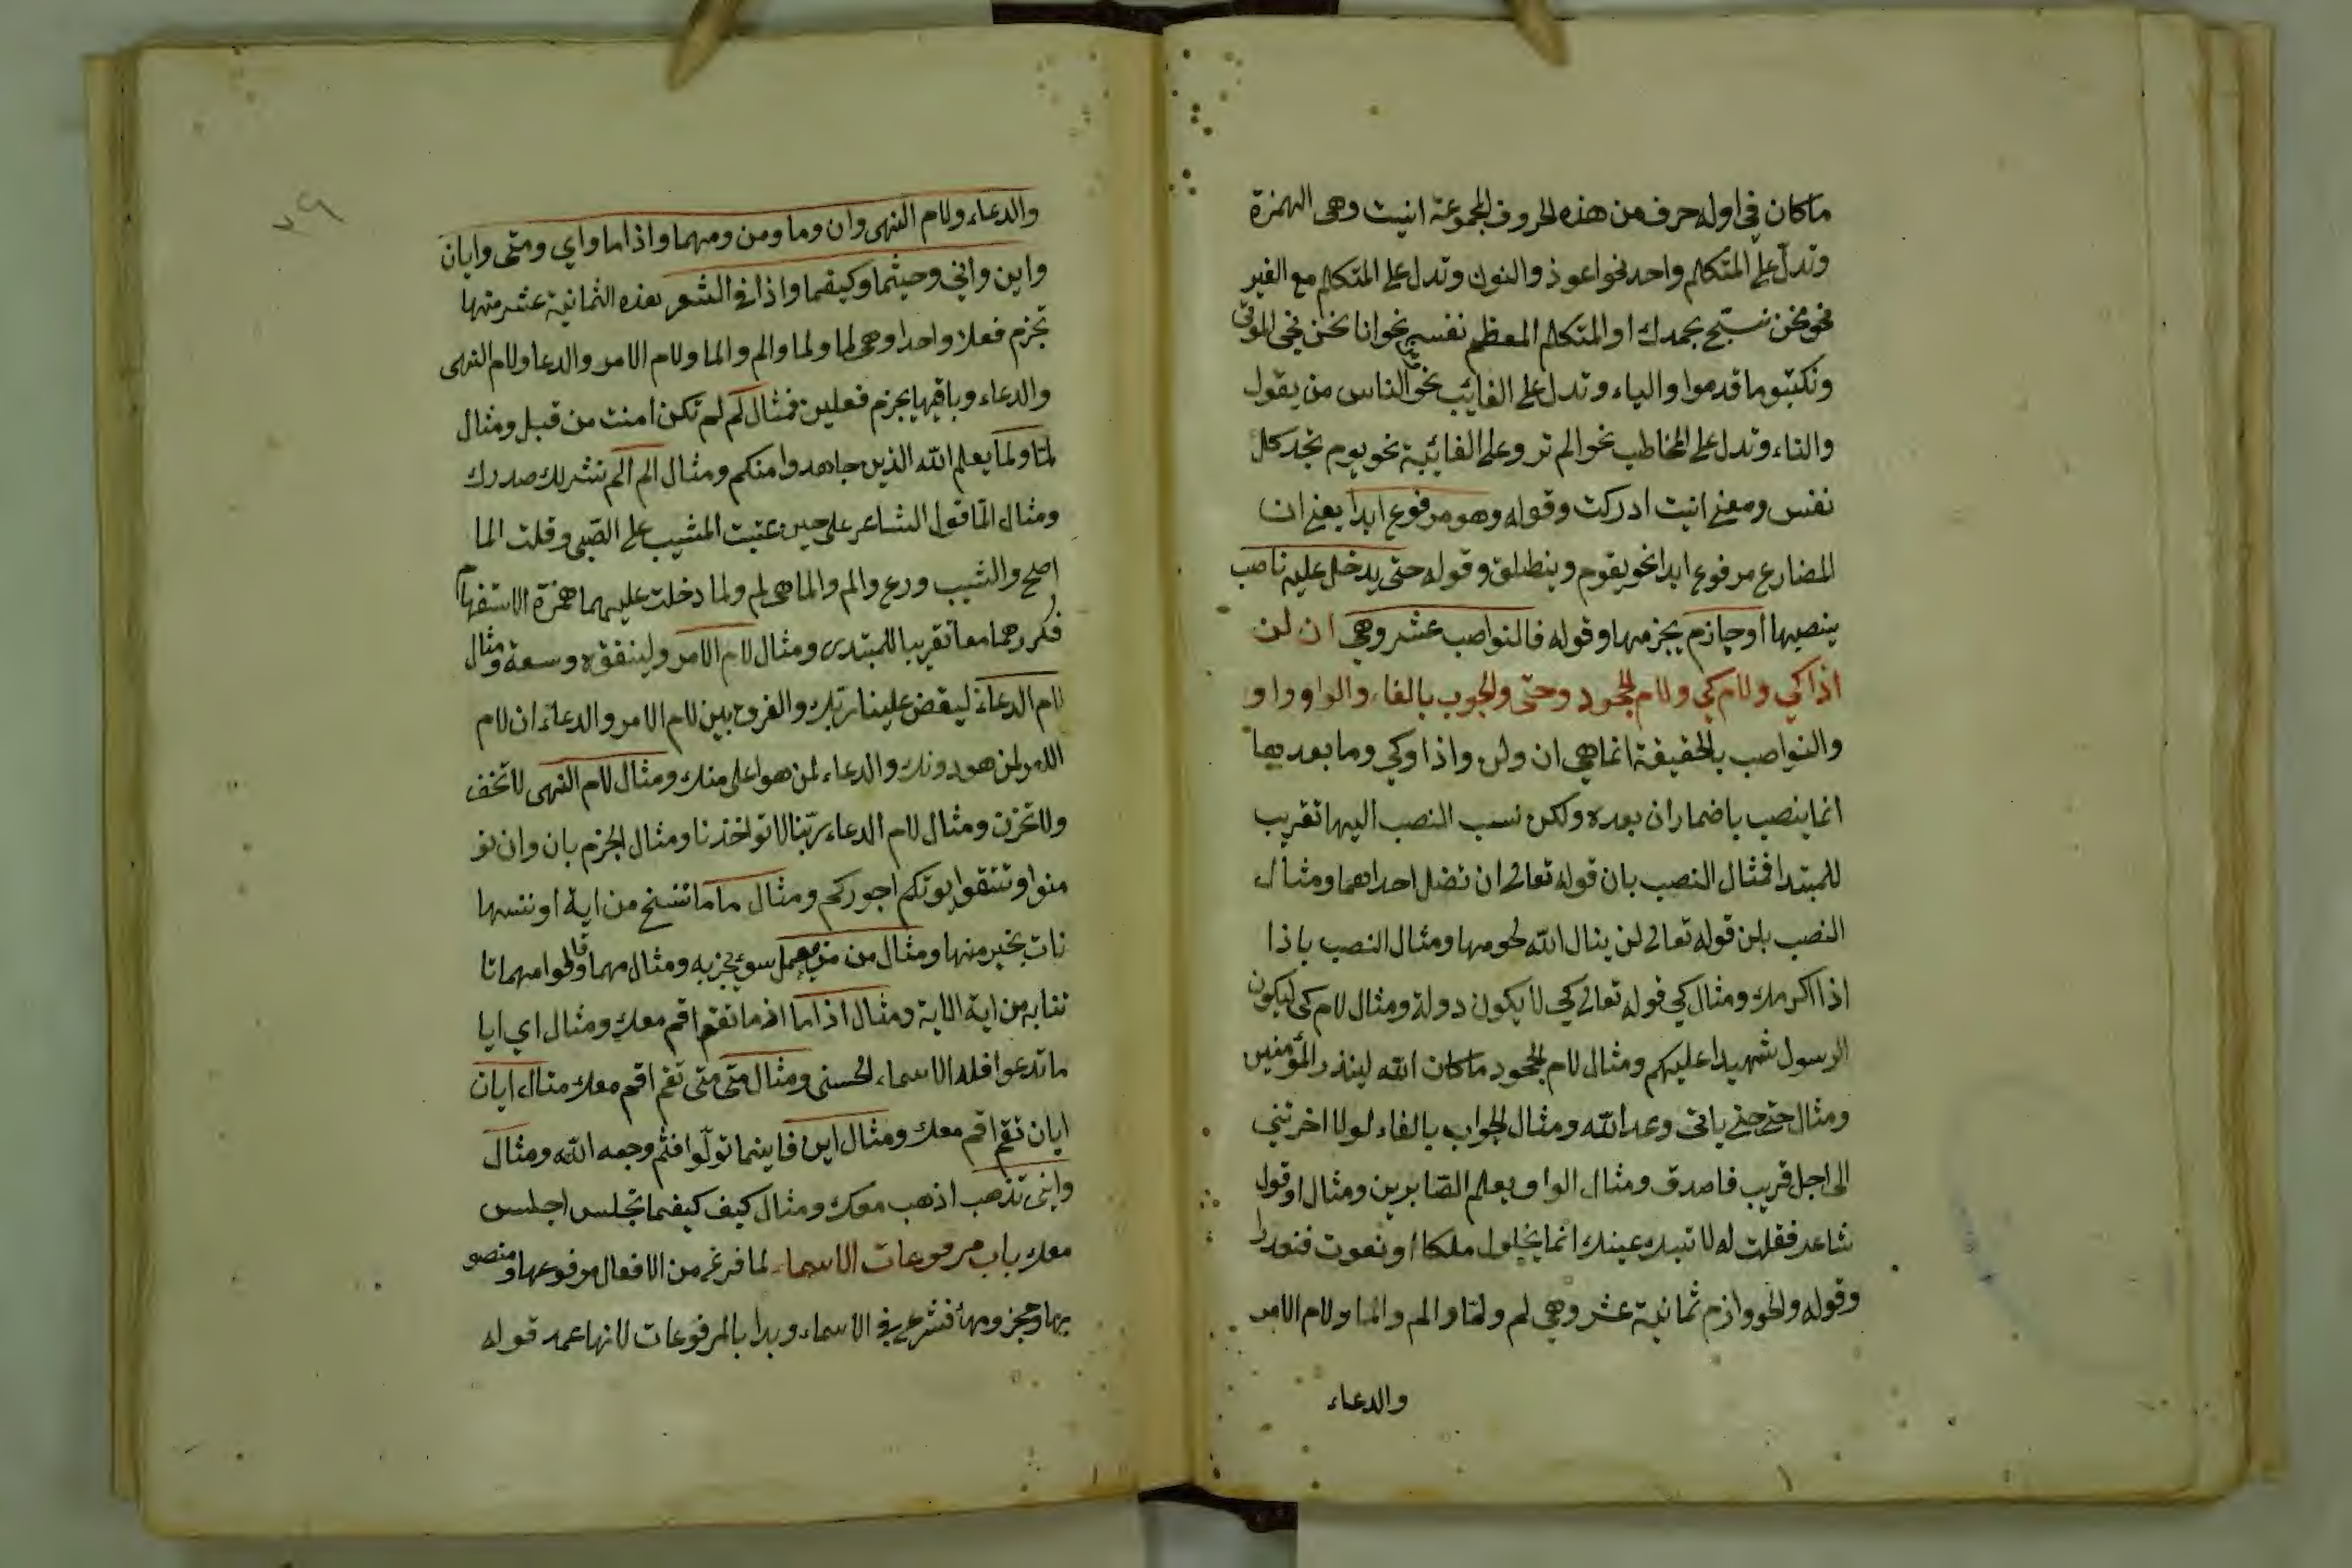 ماكان في اوله حرف من هذه الحروف المجموعة انيت وهى الهمزة
وتدل على المتكلم واحد نحو اعوذ والنون وتدل على المتكلم مع الغير
نحو نحن نسبّح بحمدك او المتكلم المعظم نفسه نحو انا نحن نحي الموتى
ونكتبو ما قدموا والياء وتدل على الغايب نحو الناس من يقول
والتاء وتدل على المخاطب نحو الم تر وعلى الغائبة نحو يوم تجد كل
نفس ومعنى انيت ادركت وقوله وهو مرفوع ابدا يعنى ان
المضارع مرفوع ابدا نحو يقوم وينطلق وقوله حتى يدخل عليه ناصب
ينصبها او جازم يجزمها وقوله فالنواصب عشر وهي ان لن
اذا كي ولام كي ولام الجحود وحتى والجوب بالفاء والواو واو
والنواصب بالحقيقة انما هي ان ولن واذا وكي وما بعديها
انما ينصب باضمار ان بعده ولكن نسب النصب اليها تقريب
للمبتدا فمثال النصب بان قوله تعالى ان تضل احداهما ومثال
النصب بلن قوله تعالى لن ينال الله لحومها ومثال النصب باذا
اذا اكرمك ومثال كي قوله تعالى كي لا يكون دولة ومثال لام كي ليكون
الرسول شهيدا عليكم ومثال لام الجحود ماكان الله ليذر المؤمنين
ومثال حتى حتى ياتى وعد الله ومثال الجواب بالفاء لولا اخرتني
الى اجل قريب فاصدق ومثال الواو ويعلم الصّابرين ومثال او قول
شاعر فقلت له لا تبك عينك انما نحاول ملكا او نموت فنعذرا
وقوله والجووازم ثمانية عشر وهي لم ولمّا والم والما ولام الامر
والدعاء
٢٩
والدعاء ولام النهى وان وما ومن ومهما واذاما واي ومتى وايان
واين واني وحيثما وكيفما واذا في الشعر بهذه الثمانية عشر منها
تجزم فعلا واحدا وهي لما ولما والم والما ولام الامر والدعا ولام النهى
والدعاء وباقيها يجزم فعلين فمثال لم لم تكن امنت من قبل ومثال
لمّا ولما يعلم الله الذين جاهدوا منكم ومثال الم الم نشرلك صدرك
ومثال المّا قول الشاعر على حين عتبت المشيب على الصّبى وقلت الما
اصلح والشيب ورع والم والما هى لم ولما دخلت عليهما همزة الاستفهام
فكررهما معا تقريبا للمبتدى ومثال لام الامر ولينفق وسعة ومثال
لام الدعاء ليقض علينا ربك والفرق بين لام الامر والدعاء ان لام
الامر لمن هو دونك والدعاء لمن هو اعلى منك ومثال لام النهى لا تخف
ولا تحزن ومثال لام الدعاء ربّنا لا تواخذنا ومثال الجزم بان وان تو
منوا وتتقوا يوتكم اجوركم ومثال ما ما ننسخ من اية او ننسها
نات بخير منها ومثال من من يعمل سوء يجز به ومثال مهما وقالوا مهما تا
تنا به من اية الاية ومثال اذاما اذ ما تقم اقم معك ومثال اي ايا
ما تدعوا فله الاسماء الحسنى ومثال متى متى تقم اقم معك مثال ايان
ايان تقم اقم معك ومثال اين فاينما تولّوا فثم وجه الله ومثال
وانى تذهب اذهب معك ومثال كيف كيفما تجلس اجلس
معك باب مرفوعات الاسماء لما فرغ من الافعال مرفوعها ومنصو
بها ومجزومها فشرع في الاسماء وبدا بالمرفوعات لانها عمد قوله